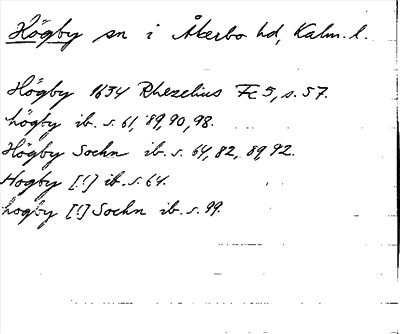 Högby sn i Åkerbo hd, Kalm. l.
Högby 1634 Rhezelius Fc 5, s. 57.
högby ib. s. 61, 89, 90, 98.
Högby Sochn ib. s. 64, 82, 89, 92.
Hogby [!] ib. s. 64.
hogby [!] Sochn ib. s. 99.